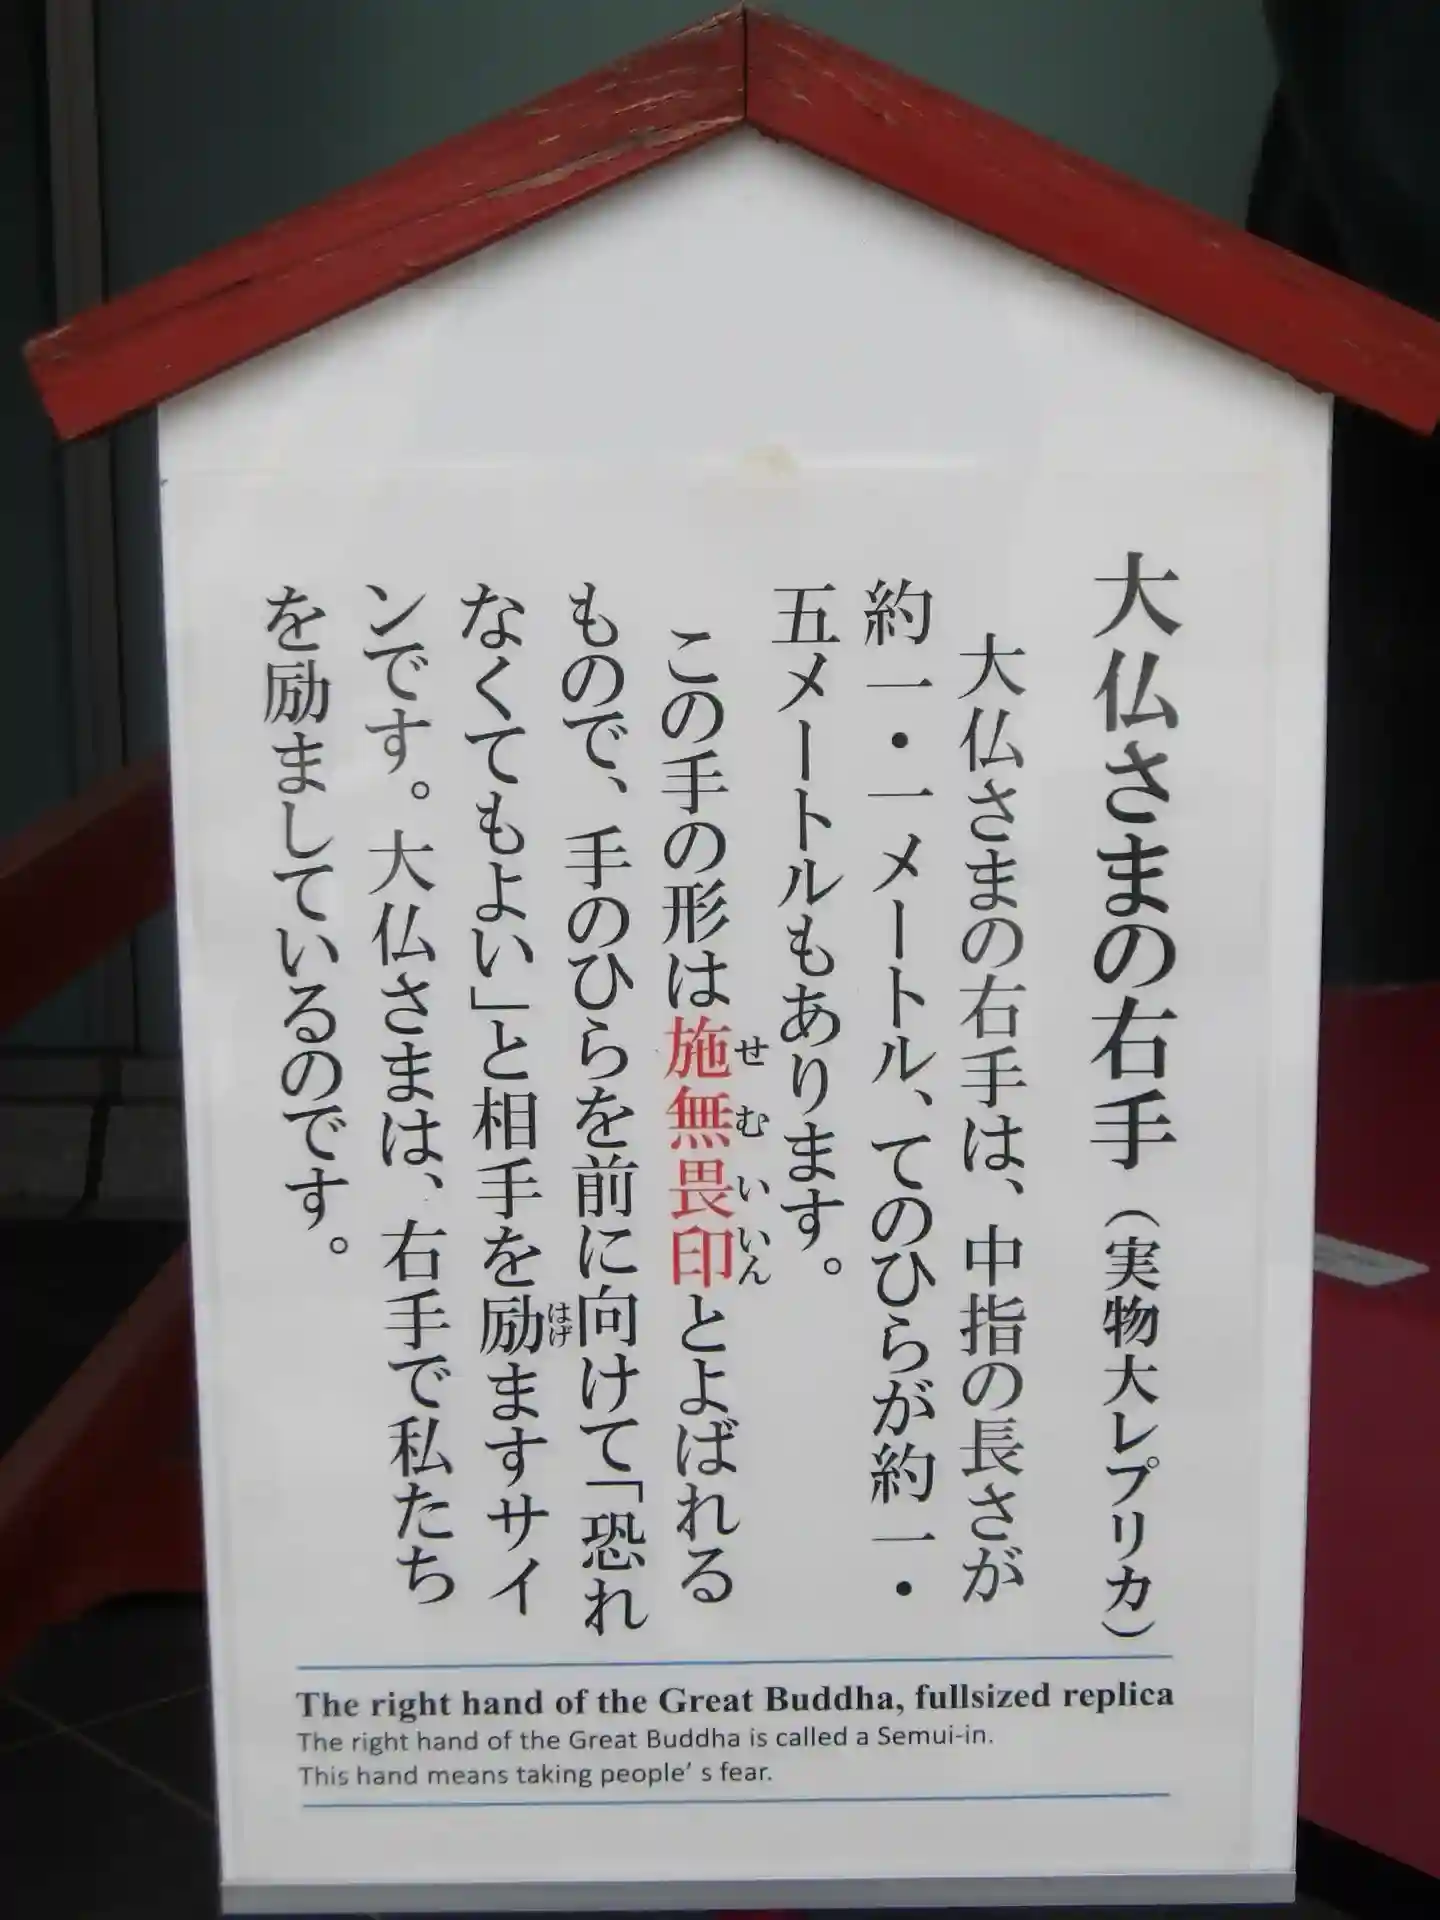 大仏さまの右手(実物大レプリカ)
大仏さまの右手は、中指の長さが
約一・一メートル、てのひらが約一・
五メートルもあります。
この手の形は施無畏印とよばれる
せむいいん
もので、手のひらを前に向けて「恐れ
なくてもよい」と相手を励ますサイ
はげ
ンです。大仏さまは、右手で私たち
を励ましているのです。
The right hand of the Great Buddha, fullsized replica
The right hand of the Great Buddha is called a Semui-in.
This hand means taking people’ s fear.